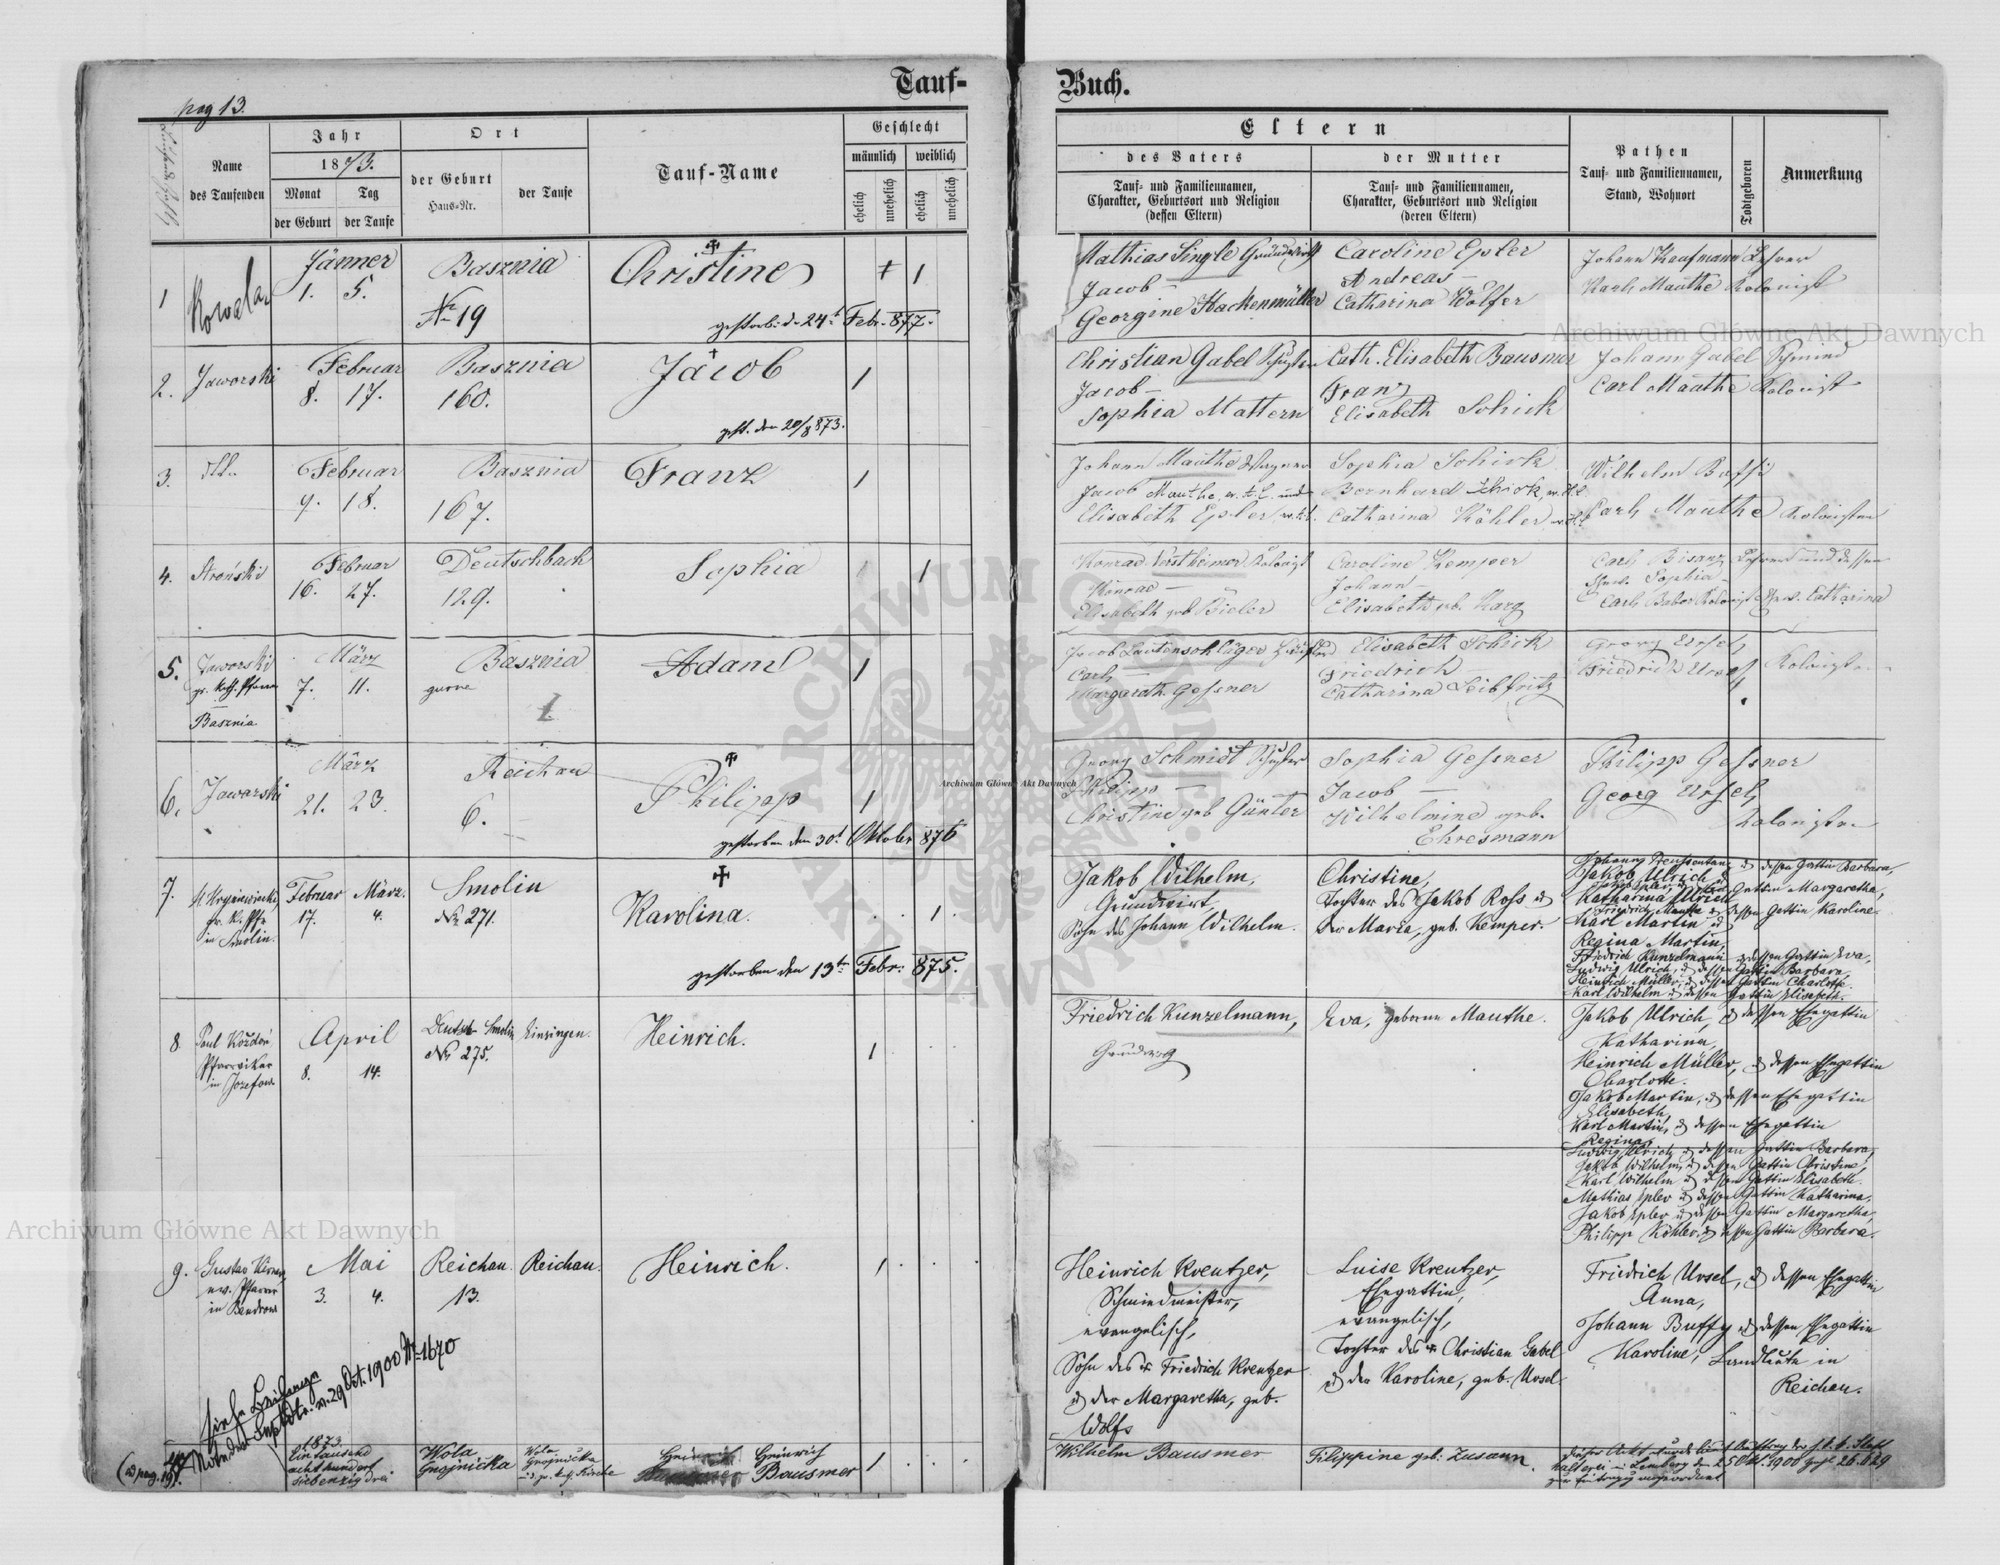 Tauf-
Buch.
pag 13.
Name
des Taufenden
Jahr
1873.
Monat
der Geburt
Tag
der Taufe
Ort
der Geburt
Haus-Nr.
der Taufe
Tauf-Name
Geschlecht
männlich
weiblich
ehelich
unehelich
ehelich
unehelich
Eltern
des Vaters
Tauf- und Familiennamen,
Charakter, Geburtsort und Religion
(dessen Eltern)
der Mutter
Tauf- und Familiennamen,
Charakter, Geburtsort und Religion
(deren Eltern)
Pathen
Tauf- und Familiennamen,
Stand, Wohnort
Todtgeboren
Anmerkung
1
Jänner
1. 5.
Basznia
Nr 19
Christine
1
gestorb. d. 24t Febr. 877.
Mathias Single Grundwirth
Jacob –
Georgine Hackenmüller
Caroline Epler
Andreas –
Catharina Wolfer
Johann Kaufmann Lehrer
Karl Mauthe Kolonist
2.
Jaworski
Februar
8. 17.
Basznia
160.
Jacob
1
gest. den 20/8 873.
Christian Gabel
Jacob –
Sophia Mattern
Cath. Elisabeth Bausmer
Franz
Elisabeth Schick
Johann Gabel Schmied
Carl Mauthe Kolonist
3.
dtt.
Februar
9. 18.
Basznia
167.
Franz
1
Johann Mauthe Wagner
Jacob Mauthe, und
Elisabeth Epler
Sophia Schick
Bernhard Schick,
Catharina Köhler
Wilhelm
Carl Mauthe Kolonisten
4.
Stroński
Februar
16. 27.
Deutschbach
129.
Sophia
1
Konrad Kolonist
Konrad –
Elisabeth geb Bieler
Caroline Kemper
Johann –
Elisabeth geb. Karg
Carl Bisanz und dessen
Sophia –
Carl Babor Kolonist Catharina
5.
Jaworski
gr. kath. Pfarrer
Basznia
März
7. 11.
Basznia
gurne
1.
Adam
1
Jacob Lautenschläger
Carl
Margareth. Gessner
Elisabeth Schick
Friedrich –
Catharina Leibfritz
Georg Ursel,
Friedrich Ursel
Kolonisten
6.
Jaworski
März
21. 23.
Reichau
6.
Philipp
1
gestorben den 30t Oktober 876
Georg Schmidt Schuster
Philipp –
Christine geb Günter
Sophia Gessner
Jacob –
Wilhelmine geb.
Ehresmann
Philipp Gessner
Georg Ursel,
Kolonisten
7.
in Smolin.
Februar
17.
März.
4.
Smolin
Nr 271.
Karolina.
1
gestorben den 13ten Febr: 875.
Jakob Wilhelm,
Grundwirt,
Sohn des Johann Wilhelm.
Christine,
Tochter des Jakob Ross u
der Maria, geb. Kemper.
u dessen Gattin Barbara,
Jakob Ulrich u
Gattin Margaretha,
Katharina Ulrich
dessen Gattin Karoline.
Karl Martin u
Regina Martin,
Friedrich Kunzelmann u dessen Gattin Eva,
Ludwig Ulrich, u dessen Gattin Barbara,
Heinrich Müller, u dessen Gattin Charlotte.
Karl Wilhelm u dessen Gattin Elisabeth.
8
Paul Koždoń
Pfarrvikar
in Josefow
April
8. 14.
Deutsch Smolin
Nr 275.
Einsingen.
Heinrich.
1
Friedrich Kunzelmann,
Eva, geborene Mauthe.
Jakob Ulrich, u dessen Ehegattin
Katharina,
Heinrich Müller, u dessen Ehegattin
Charlotte.
Jakob Martin, u dessen Ehegattin
Elisabeth,
Karl Martin, u dessen Ehegattin
Regina,
Ludwig Ulrich, u dessen Gattin Barbara,
Jakob Wilhelm, u dessen Gattin Christine,
Karl Wilhelm u dessen Gattin Elisabeth.
Mathias Epler u dessen Gattin Katharina,
Jakob Epler u dessen Gattin Margaretha,
Philipp Köhler, u dessen Gattin Barbara.
9.
Gustav
ev. Pfarrer
in Bandrow
Mai
3. 4.
Reichau.
13.
Reichau.
Heinrich.
1
Heinrich Kreutzer,
Schmiedmeister,
evangelisch,
Sohn des Friedrich Kreutzer
u der Margaretha, geb.
Wolfs
Luise Kreutzer,
Ehegattin,
evangelisch,
Tochter des Christian Gabel
u der Karoline, geb. Ursel.
Friedrich Ursel, u dessen Ehegattin
Anna,
Johann Buffy u dessen Ehegattin
Karoline, Landleute in
Reichau.
29 Oct. 1900 Nr 1670
1873
Ein tausend
acht hundert
siebenzig drei
Wola
Gnojnicka
Wola
Gnojnicka
Kirche
Heinrich
Bausmer
1
Wilhelm Bausmer
Filippine geb. Zusann.
Lemberg den 25 Okt. 1900
Archiwum Główne Akt Dawnych
Archiwum Główne Akt Dawnych
Archiwum Główne Akt Dawnych
ARCHIWUM GŁÓWNE AKT DAWNYCH